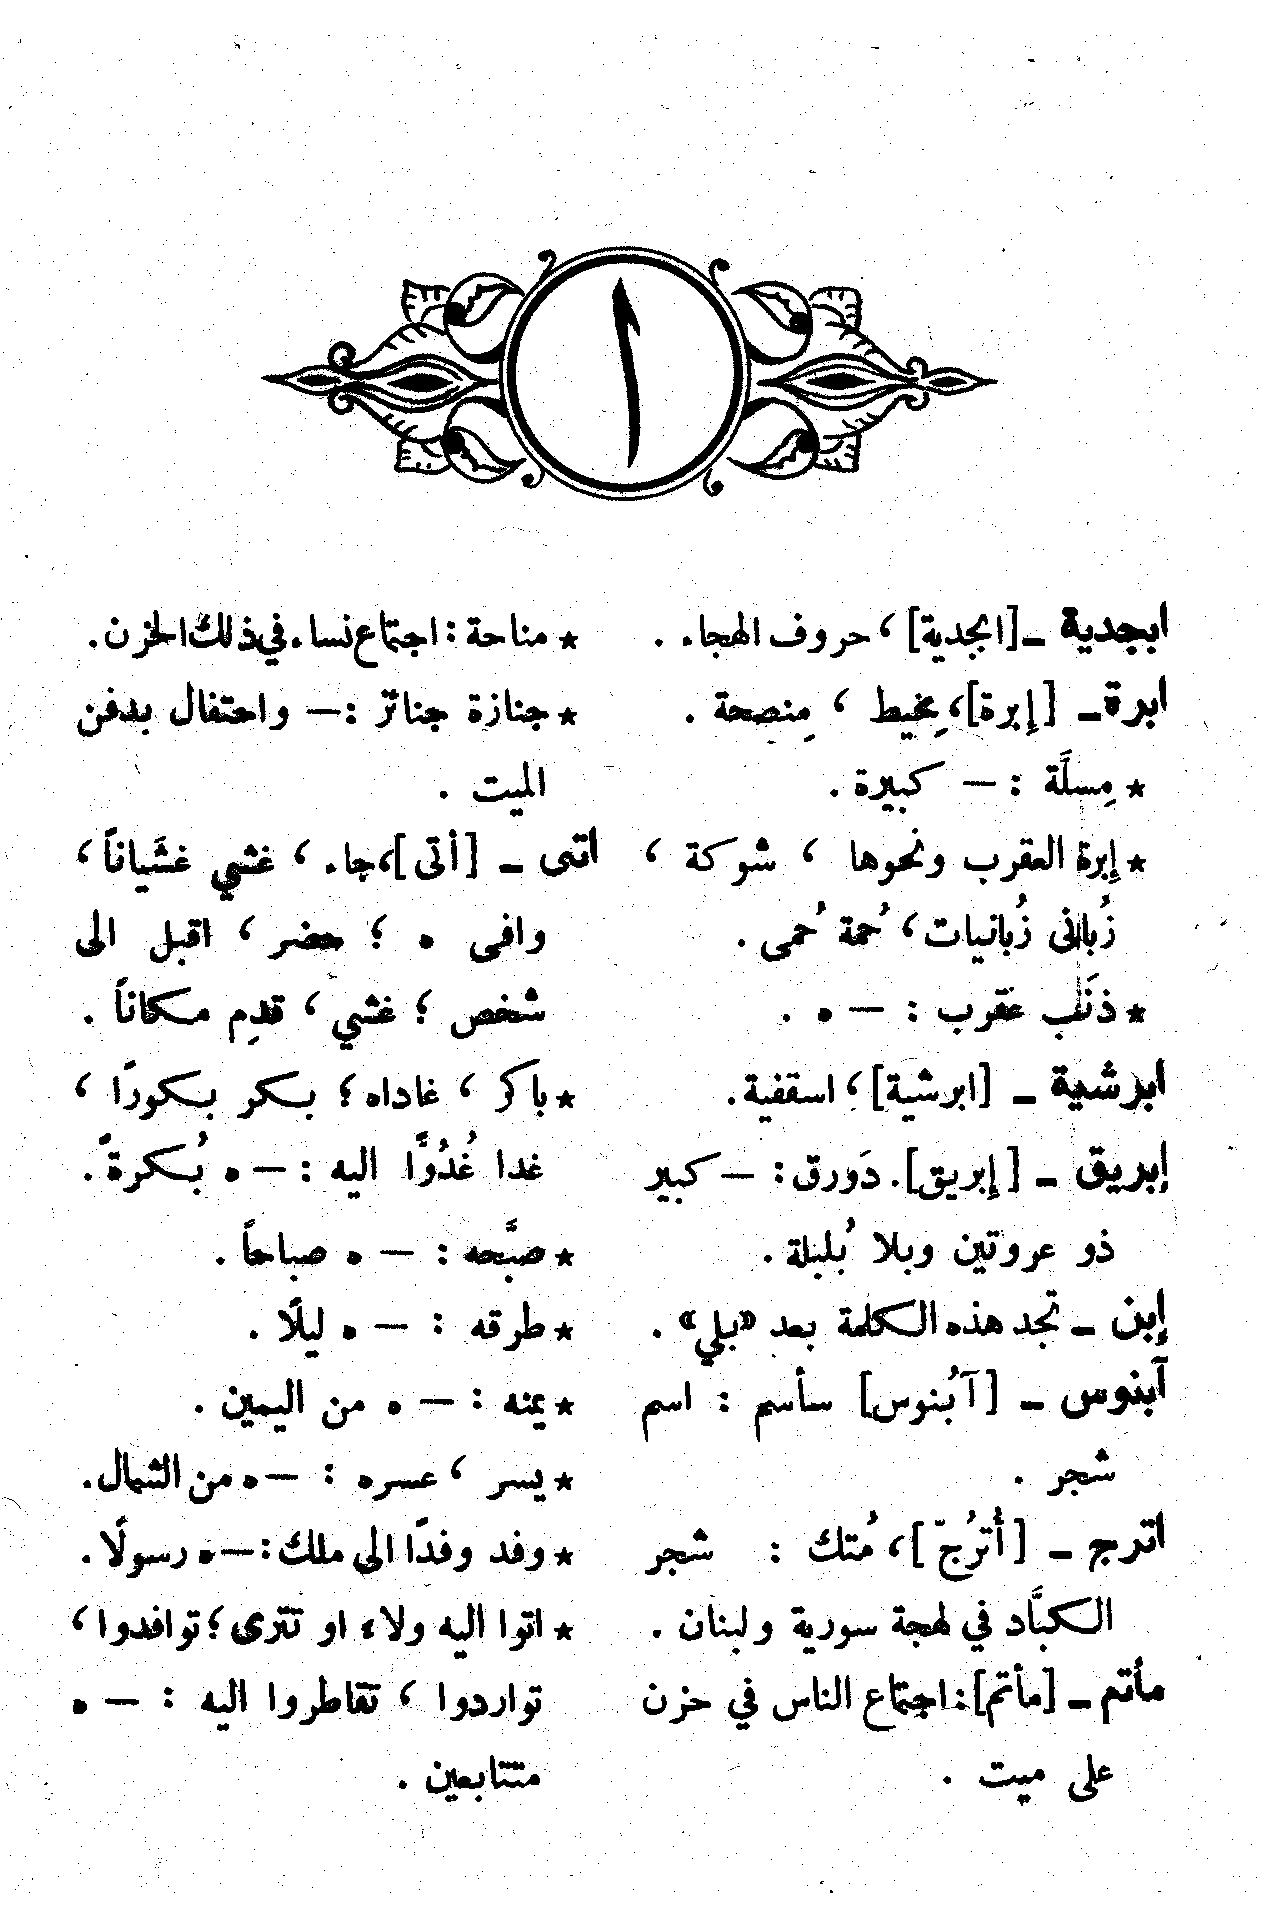 ا
ابجدية ـ [ابجدية] ، حروف الهجاء .
ابرة ـ [إبرة] ، مِخيط ، مِنصحة .
★ مِسلَّة : — كبيرة .
★ إبرة العقرب ونحوها ، شوكة ،
زُبانى زُبانيات ، حُمة حُمى .
★ ذنَب عقرب : — ه .
ابرشية ـ [ابرشية] ، اسقفية .
إبريق ـ [إبريق] . دَورق : — كبير
ذو عروتين وبلا بُلبلة .
إبن ـ تجد هذه الكلمة بعد «بلي» .
آبنوس ـ [آبُنوس] سأسم : اسم
شجر .
اترج ـ [أُترُجّ] ، مُتك : شجر
الكبَّاد في لهجة سورية ولبنان .
مأتم ـ [مأتم] : اجتماع الناس في حزن
على ميت .
★ مناحة : اجتماع نساء في ذلك الحزن .
★ جنازة جنائز : — واحتفال بدفن
الميت .
اتى ـ [أتى] ، جاء ، غشي غشَياناً ،
وافى ه ؛ حضر ، اقبل الى
شخص ؛ غشي ، قدِم مكاناً .
★ باكر ، غاداه ؛ بكر بكورًا ،
غدا غُدُوًّا اليه : — ه بُكرةً .
★ صبَّحه : — ه صباحاً .
★ طرقه : — ه ليلًا .
★ يمنه : — ه من اليمين .
★ يسر ، عسره : — ه من الشمال .
★ وفد وفدًا الى ملك : — ه رسولًا .
★ اتوا اليه ولاء او تترى ؛ توافدوا ،
تواردوا ، تقاطروا اليه : — ه
متتابعين .